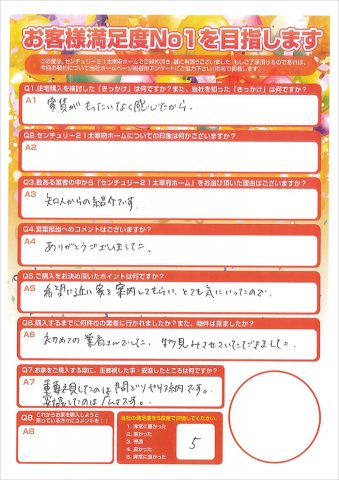 お客様満足度No1を目指します
この度は、センチュリー21太宰府ホームでご契約頂き、誠に有難うございました。もしご了承頂けるのであれば、
今回の契約について当社ホームページ掲載用アンケートにご協力下さい(匿名で掲載します)
Q1.住宅購入を検討した「きっかけ」は何ですか?また、当社を知った「きっかけ」は何ですか?
A1
家賃がもったいなく感じたから。
Q2.センチュリー21太宰府ホームについての印象は何かございますか?
A2
Q3.数ある業者の中から「センチュリー21太宰府ホーム」をお選び頂いた理由はございますか?
A3
知人からの紹介です。
Q4.営業担当へのコメントはございますか?
A4
ありがとうございました。
Q5.ご購入をお決め頂いたポイントは何ですか?
A5
希望に近い家を案内してもらい、とても気にいったので。
Q6.購入するまでに何件位の業者に行かれましたか?また、物件は見ましたか?
A6
初めての業者さんでした。物見させていただきました。
Q7.お家をご購入する際に、重要視した事・妥協したところは何ですか?
A7
重要視したのは間どりやリフォーム内です。
妥協したのは広さです。
Q8.これからお家を購入しようと
思っている方々にコメントを!!
A8
当社の満足度を5段階で評価してください。
1. 非常に悪かった
2. 悪かった
3. 普通
4. 良かった
5. 非常に良かった
5